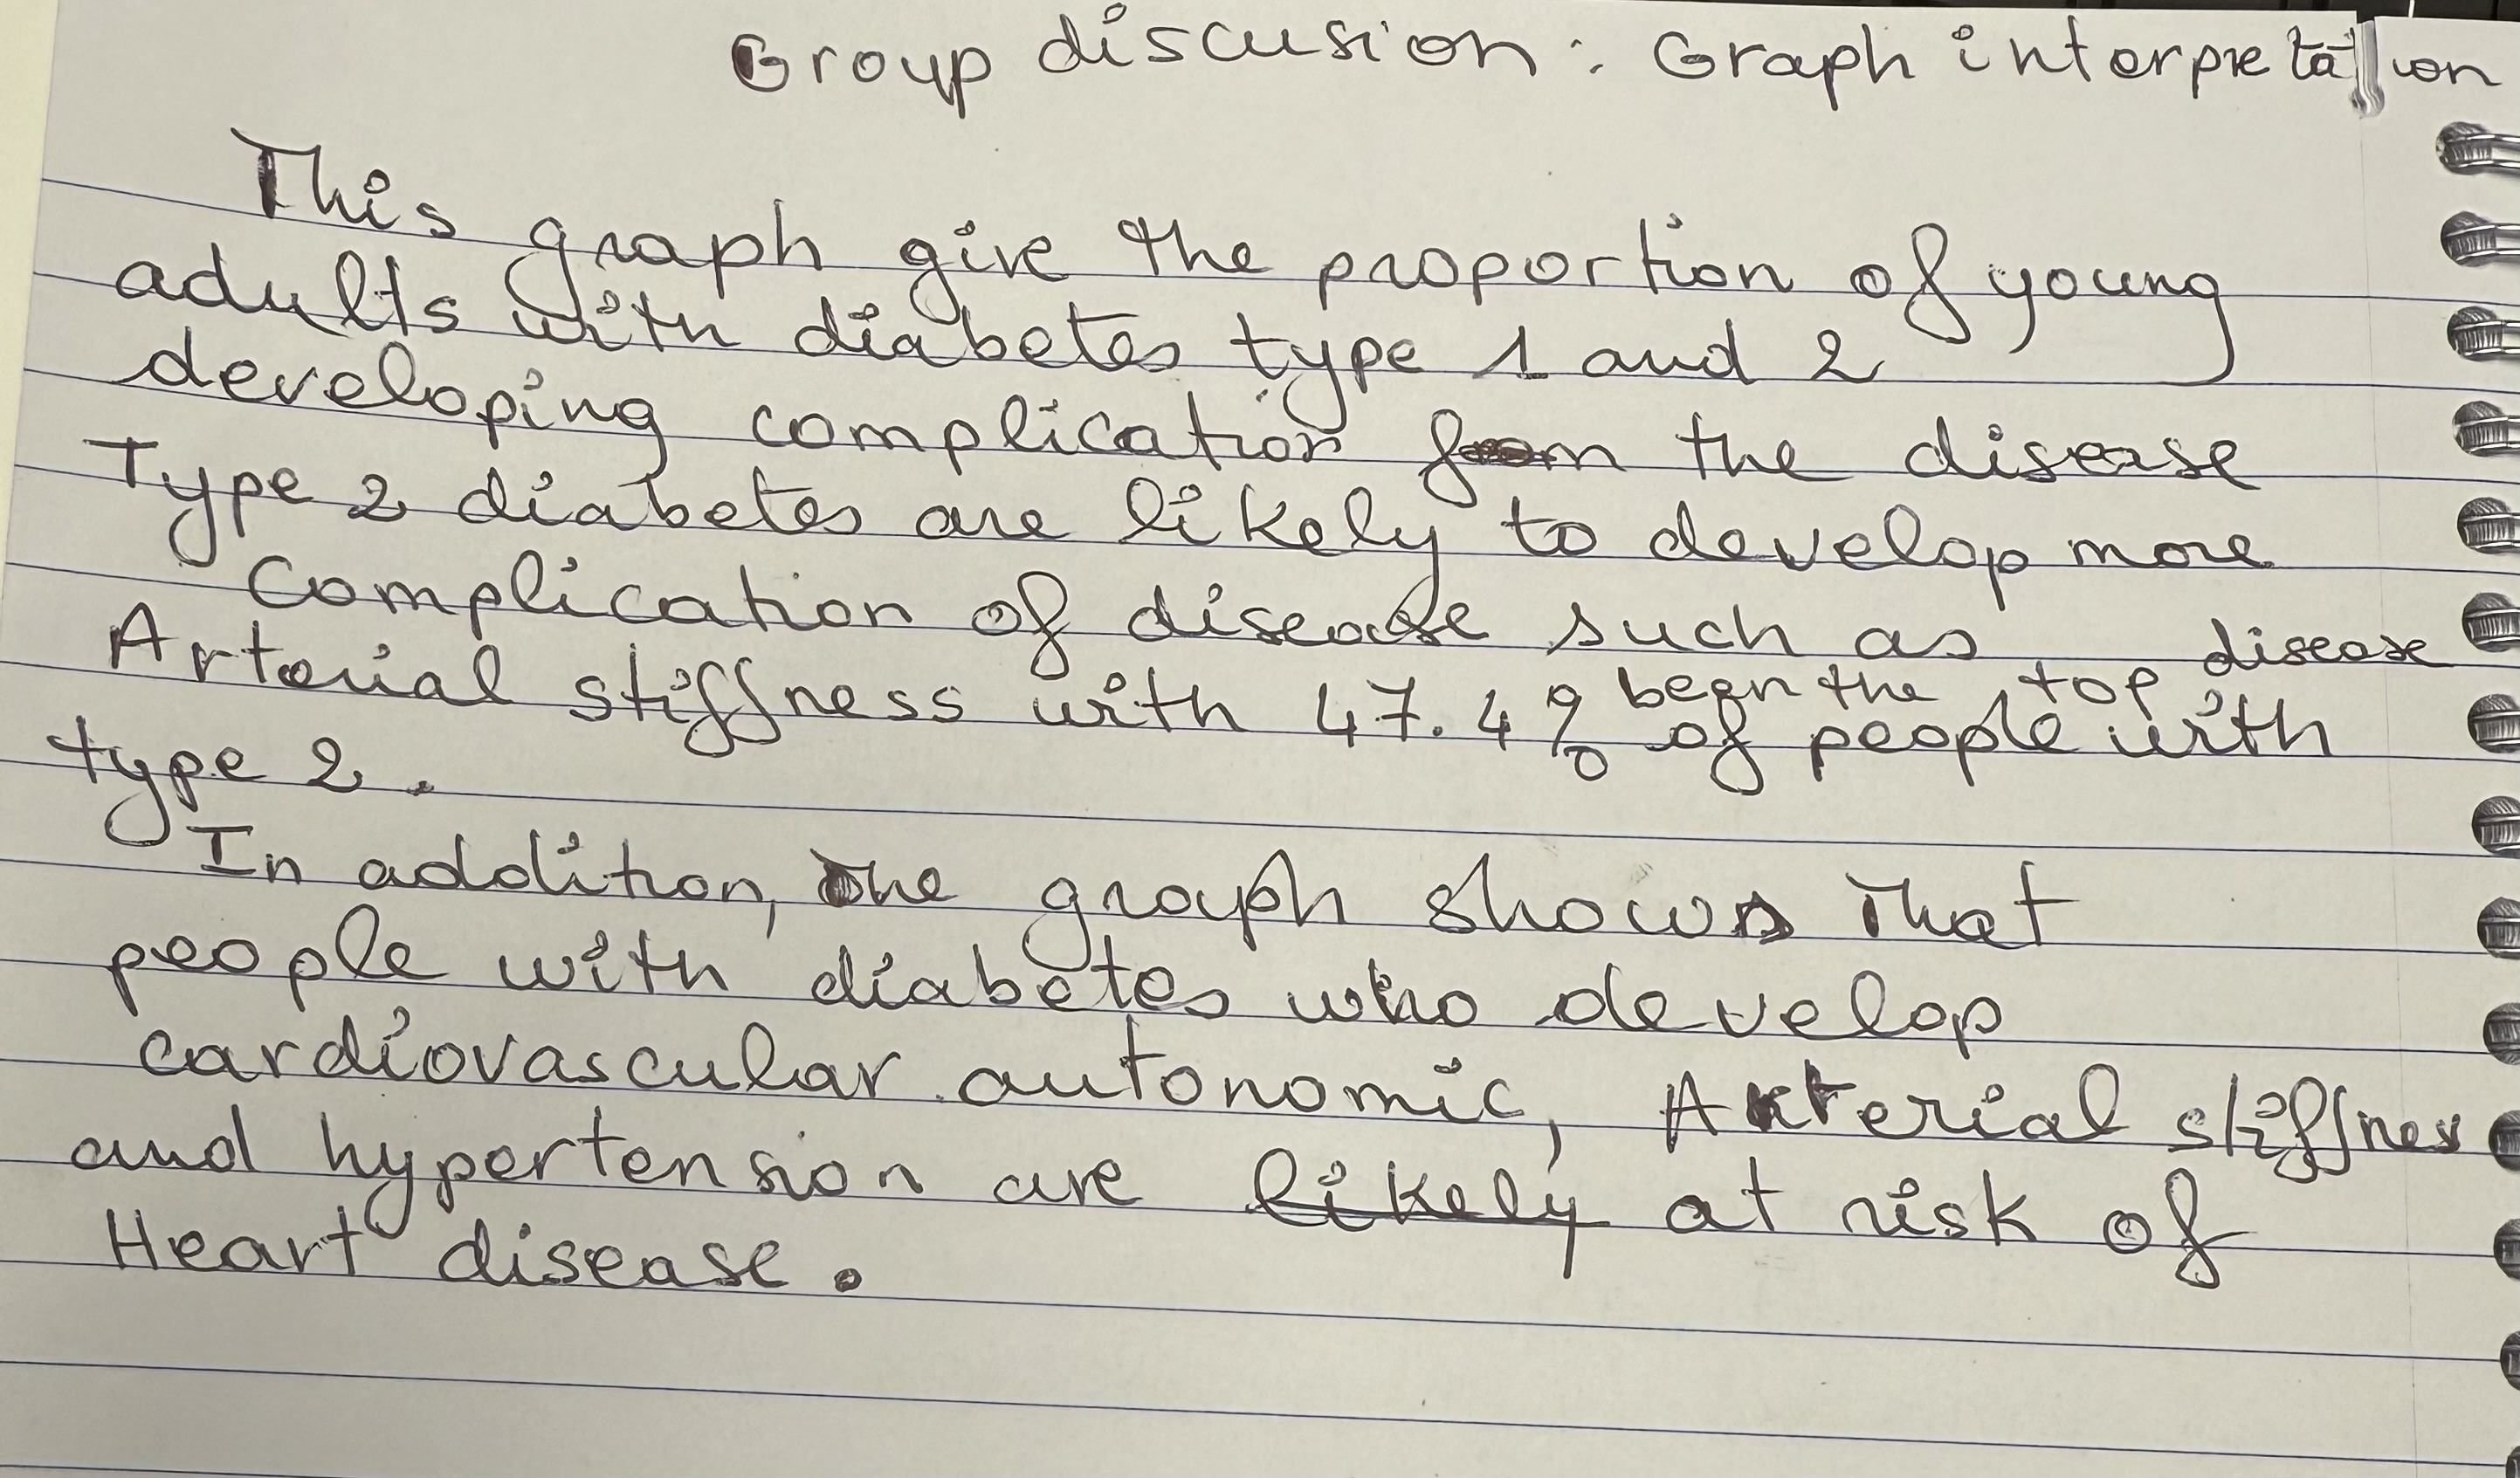 Group discusion : Graph interpretation
This graph give the proportion of young
adults with diabetes type 1 and 2
developing complication from the disease
Type 2 diabetes are likely to develop more
Complication of disease such as
Arterial stiffness with 47.4% of people with
begn the top disease
type 2.
In addition, the graph shows that
people with diabetes who develop
cardiovascular autonomic, Arterial stiffness
and hypertension are likely at risk of
Heart disease.